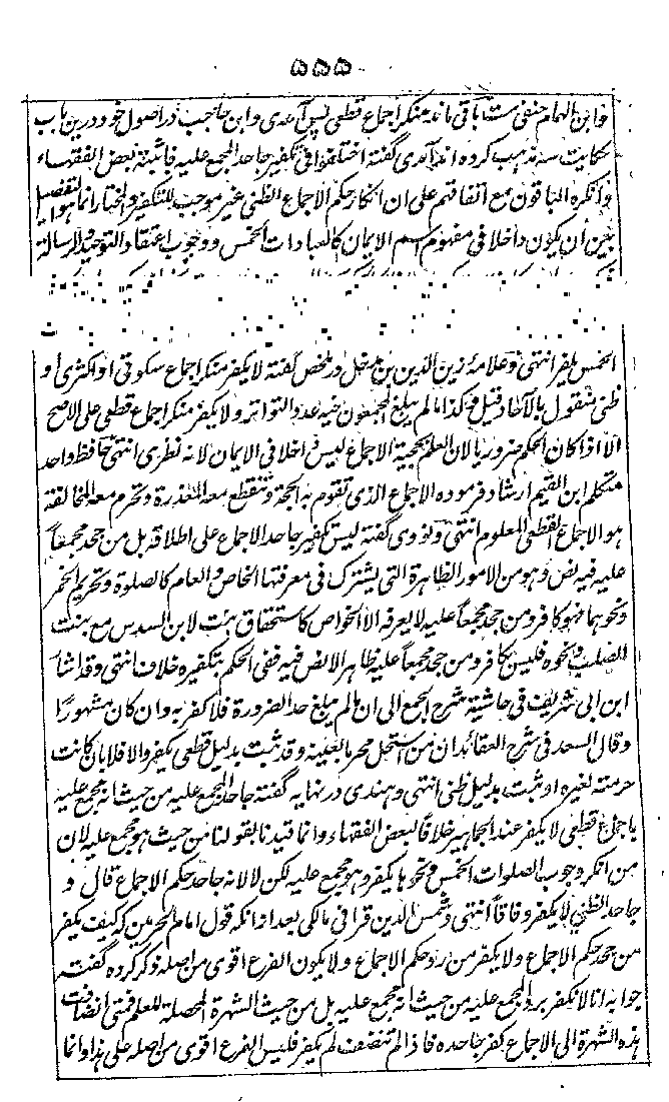 ۵۵۵
وابن الهمام حنفی ست باقی ماند منکر اجماع قطعی پس آمدی وابن حاجب در اصول خود درین باب
حکایت سه مذهب کرده اند آمدی گفته اختلفوا فی تکفیر جاحد المجمع علیه فاثبته بعض الفقهاء
وانکره الباقون مع اتفاقهم علی ان انکار حکم الاجماع الظنی غیر موجب للتکفیر والمختار انما هو التفصیل
بین أن یکون داخلا فی مفهوم اسم الایمان کالعبادات الخمس ووجوب اعتقاد التوحید والرسالة
الخمس یکفر انتهی وعلامۀ زین الدین بن در ملخص گفته لا یکفر منکر اجماع سکوتی او اکثری او
ظنی منقول بالآحاد قیل وکذا ما لم یبلغ المجمعون فیه عدد التواتر ولا یکفر منکر اجماع قطعی علی الاصح
الا اذا کان الحکم ضروریا لان العلم بحجیة الاجماع لیس داخلا فی الایمان لانه نظری انتهی حافظ واحد
متکلم ابن القیم ارشاد فرموده الاجماع الذی تقوم به الحجة وتنقطع معه المعذرة وتحرم معه المخالفة
هو الاجماع القطعی المعلوم انتهی ونووی گفته لیس تکفیر جاحد الاجماع علی اطلاقه بل من جحد مجمعاً
علیه فیه نص وهو من الامور الظاهرة التی یشترک فی معرفتها الخاص والعام کالصلوة وتحریم الخمر
ونحوهما فهو کافر ومن جحد مجمعاً علیه لا یعرفه الا الخواص کاستحقاق بنت الابن السدس مع بنت
الصلب ونحوه فلیس بکافر ومن جحد مجمعاً علیه ظاهرا لا نص فیه ففی الحکم بتکفیره خلاف انتهی وقد اشار
ابن ابی شریف فی حاشیة شرح الجمع الی ان ما لم یبلغ حد الضرورة فلا کفر به وان کان مشهورًا
وقال السعد فی شرح العقائد ان من استحل محرما لعینه وقد ثبت بدلیل قطعی یکفر والا فلا بان کانت
حرمته لغیره او ثبت بدلیل ظنی انتهی وهندی در نهایه گفته جاحد المجمع علیه من حیث انه مجمع علیه
باجماع قطعی لا یکفر عند الجماهیر خلافاً لبعض الفقهاء وانما قیدنا بقولنا من حیث هو مجمع علیه لان
من انکر وجوب الصلوات الخمس ونحوها یکفر وهو مجمع علیه لکن لا لانه جاحد حکم الاجماع قال و
جاحد الظنی لا یکفر وفاقاً انتهی وشمس الدین قرافی مالکی بعد از انکه قول امام الحرمین که کیف یکفر
من جحد حکم الاجماع ولا یکفر من رد حکم الاجماع ولا یکون الفرع اقوی من اصله ذکر کرده گفته
جوابه انا لا نکفر برد المجمع علیه من حیث انه مجمع علیه بل من حیث الشهرة المحصلة للعلم فمتی انضافت
هذه الشهرة الی الاجماع کفر جاحده فاذا لم تنضف لم یکفر فلیس الفرع اقوی من اصله علی هذا وانما